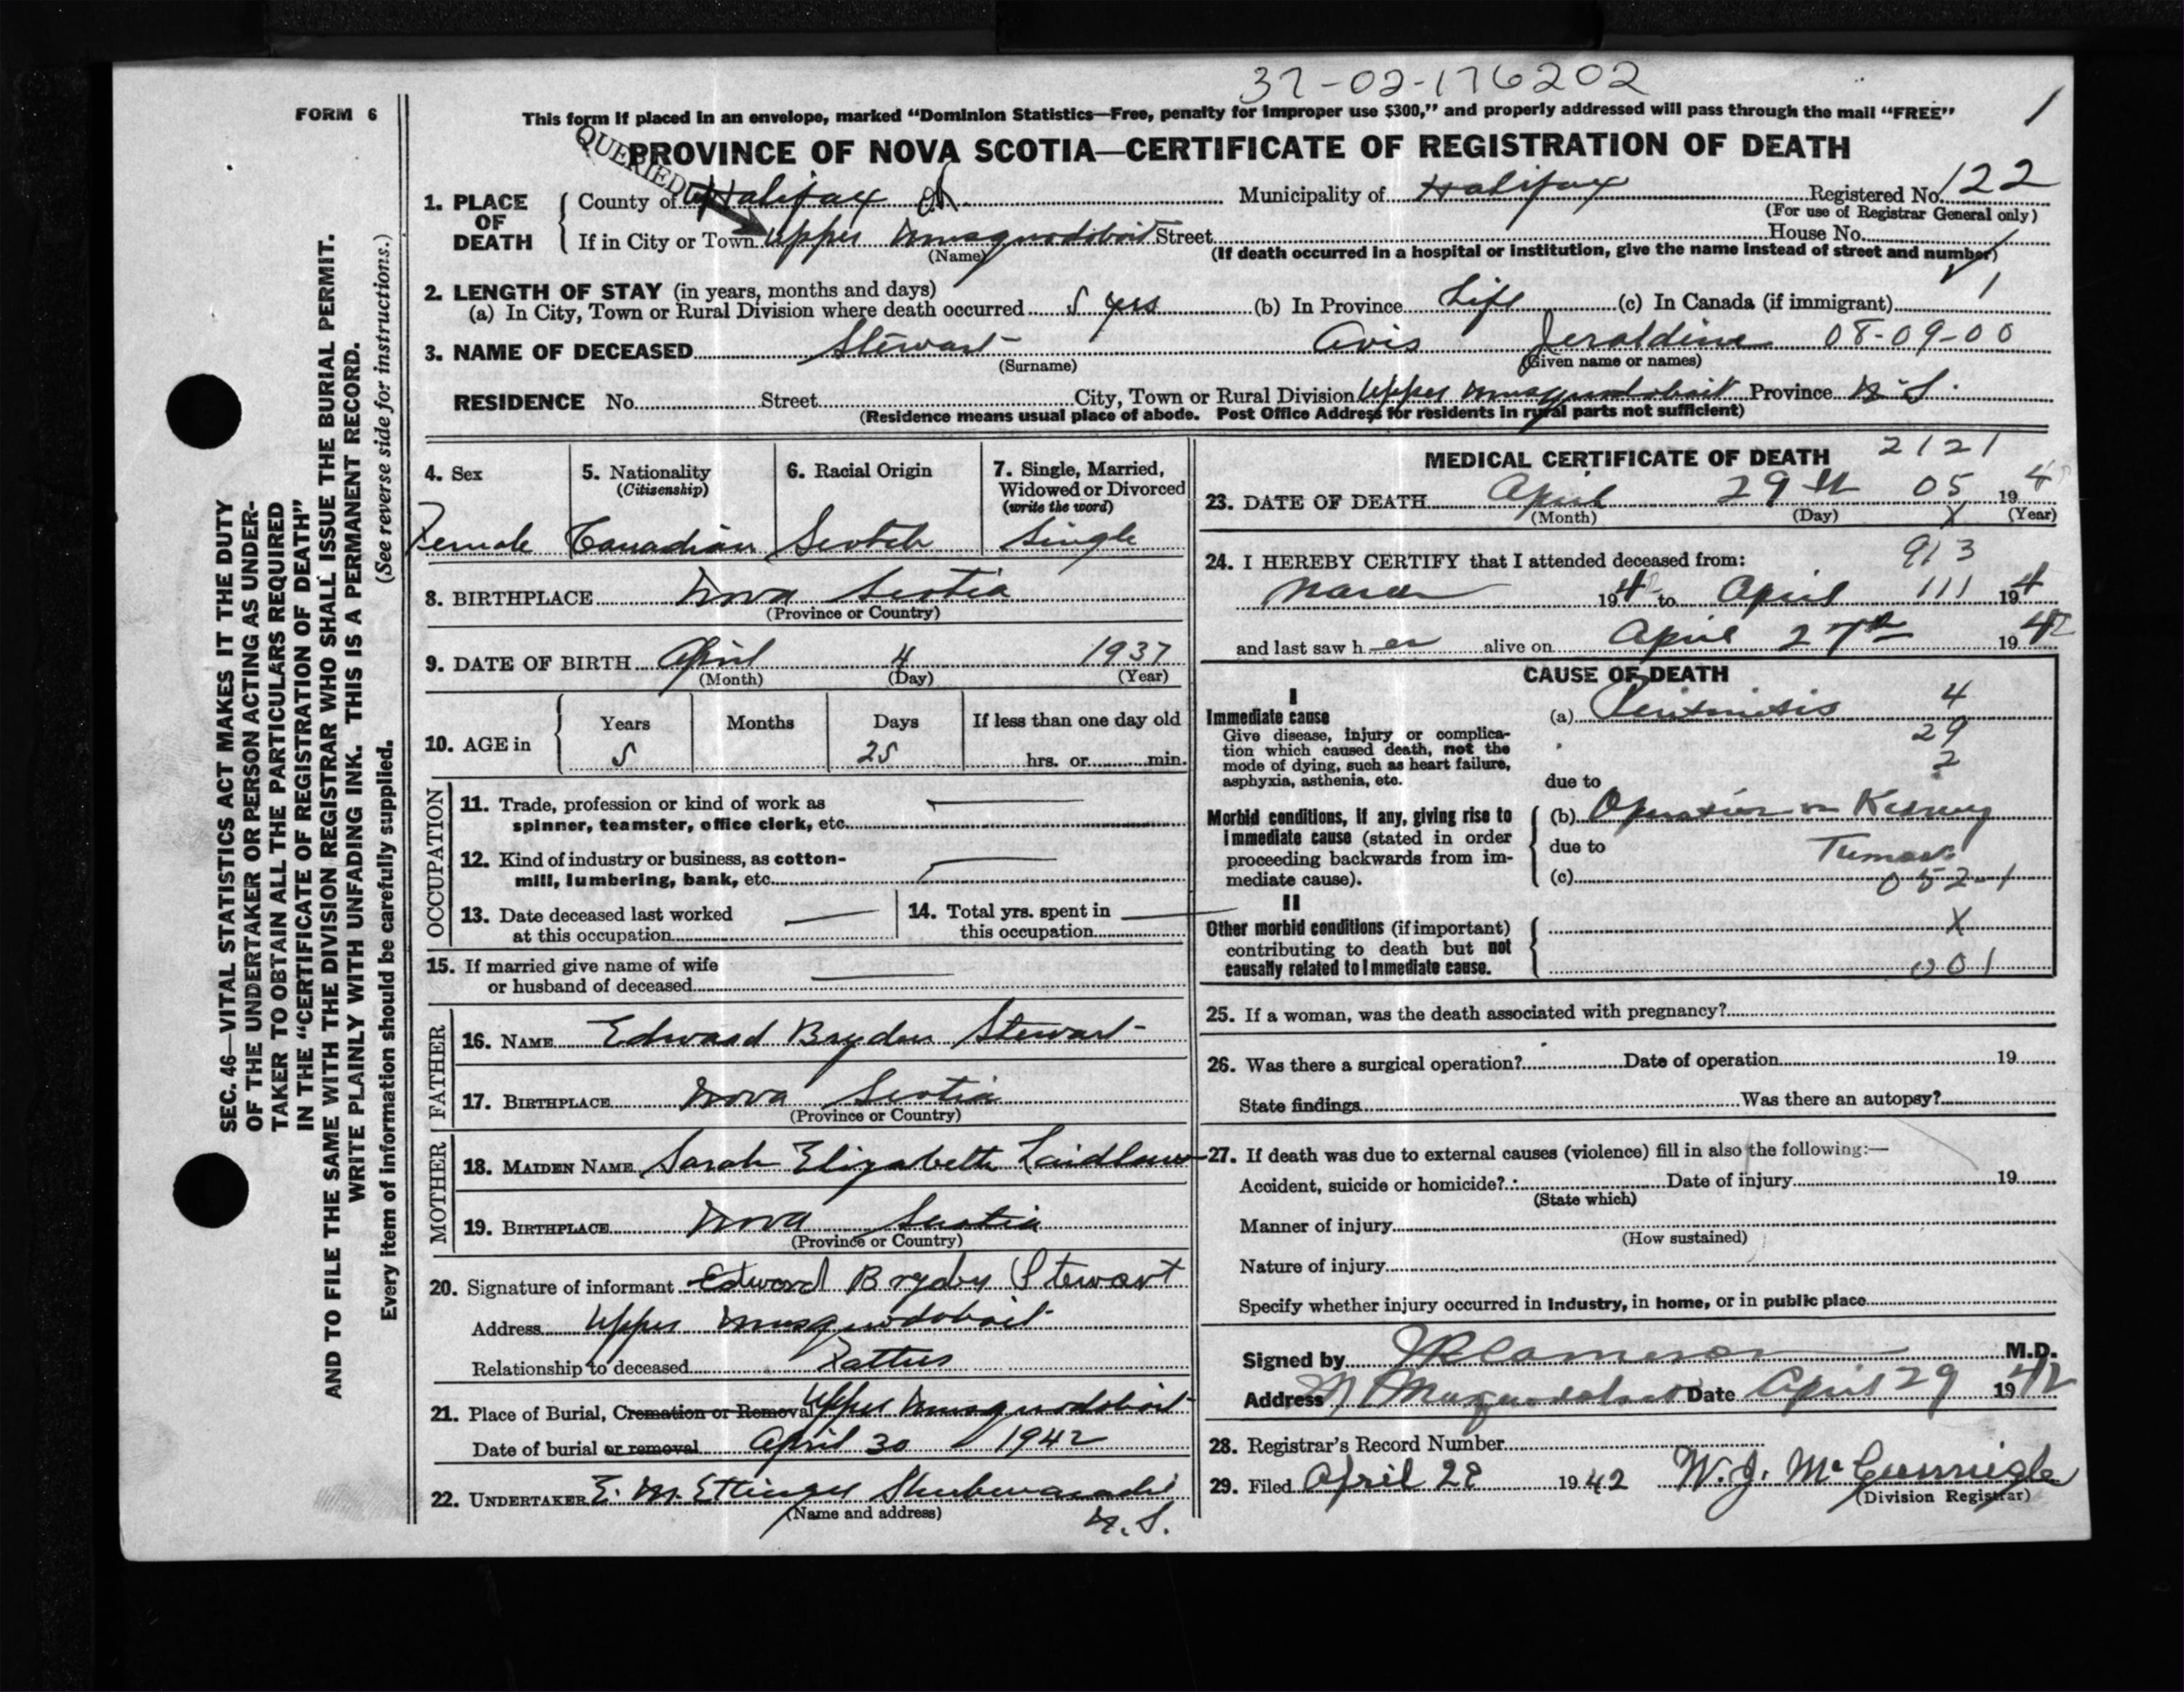 37-02-176202
FORM 6
This form if placed in an envelope, marked "Dominion Statistics—Free, penalty for improper use $300," and properly addressed will pass through the mail "FREE"
1
QUERIED
PROVINCE OF NOVA SCOTIA—CERTIFICATE OF REGISTRATION OF DEATH
1. PLACE OF DEATH
County of Halifax Municipality of Halifax Registered No. 122
(For use of Registrar General only)
If in City or Town Upper Musquodoboit Street House No.
(Name) (If death occurred in a hospital or institution, give the name instead of street and number)
2. LENGTH OF STAY (in years, months and days)
(a) In City, Town or Rural Division where death occurred 5 yrs (b) In Province Life (c) In Canada (if immigrant) 1
3. NAME OF DECEASED Stewart Avis Jeraldine 08-09-00
(Surname) (Given name or names)
RESIDENCE No. Street City, Town or Rural Division Upper Musquodoboit Province N.S.
(Residence means usual place of abode. Post Office Address for residents in rural parts not sufficient)
4. Sex
Female
5. Nationality
(Citizenship)
Canadian
6. Racial Origin
Scotch
7. Single, Married,
Widowed or Divorced
(write the word)
Single
8. BIRTHPLACE Nova Scotia
(Province or Country)
9. DATE OF BIRTH April 4 1937
(Month) (Day) (Year)
10. AGE in
Years Months Days If less than one day old
5 25 hrs. or min.
OCCUPATION
11. Trade, profession or kind of work as
spinner, teamster, office clerk, etc.
12. Kind of industry or business, as cotton-
mill, lumbering, bank, etc.
13. Date deceased last worked
at this occupation
14. Total yrs. spent in
this occupation
15. If married give name of wife
or husband of deceased
FATHER
16. NAME Edward Bryden Stewart
17. BIRTHPLACE Nova Scotia
(Province or Country)
MOTHER
18. MAIDEN NAME Sarah Elizabeth Laidlaw
19. BIRTHPLACE Nova Scotia
(Province or Country)
20. Signature of informant Edward Bryden Stewart
Address Upper Musquodoboit
Relationship to deceased Father
21. Place of Burial, Cremation or Removal Upper Musquodoboit
Date of burial or removal April 30 1942
22. UNDERTAKER E. M. Ettinger Shubenacadie
(Name and address) N.S.
MEDICAL CERTIFICATE OF DEATH 2121
23. DATE OF DEATH April 29th 05 194
(Month) (Day) X (Year)
24. I HEREBY CERTIFY that I attended deceased from: 913
March 194 to April 111 194
and last saw her alive on April 27th 1942
CAUSE OF DEATH
I
Immediate cause
Give disease, injury or complica-
tion which caused death, not the
mode of dying, such as heart failure,
asphyxia, asthenia, etc.
(a) Peritonitis 4
29
2
due to
Morbid conditions, if any, giving rise to
immediate cause (stated in order
proceeding backwards from im-
mediate cause).
(b) Operation on Kidney
due to Tumor
(c) 052-1
II
Other morbid conditions (if important)
contributing to death but not
causally related to immediate cause.
X
001
25. If a woman, was the death associated with pregnancy?
26. Was there a surgical operation? Date of operation 19
State findings Was there an autopsy?
27. If death was due to external causes (violence) fill in also the following:—
Accident, suicide or homicide? Date of injury 19
(State which)
Manner of injury
(How sustained)
Nature of injury
Specify whether injury occurred in industry, in home, or in public place
Signed by Cameron M.D.
Address M Musquodoboit Date April 29 1942
28. Registrar's Record Number
29. Filed April 28 1942 W. J. McGunnigle
(Division Registrar)
SEC. 46—VITAL STATISTICS ACT MAKES IT THE DUTY
OF THE UNDERTAKER OR PERSON ACTING AS UNDER-
TAKER TO OBTAIN ALL THE PARTICULARS REQUIRED
IN THE "CERTIFICATE OF REGISTRATION OF DEATH"
AND TO FILE THE SAME WITH THE DIVISION REGISTRAR WHO SHALL ISSUE THE BURIAL PERMIT.
WRITE PLAINLY WITH UNFADING INK. THIS IS A PERMANENT RECORD.
Every item of information should be carefully supplied. (See reverse side for instructions.)